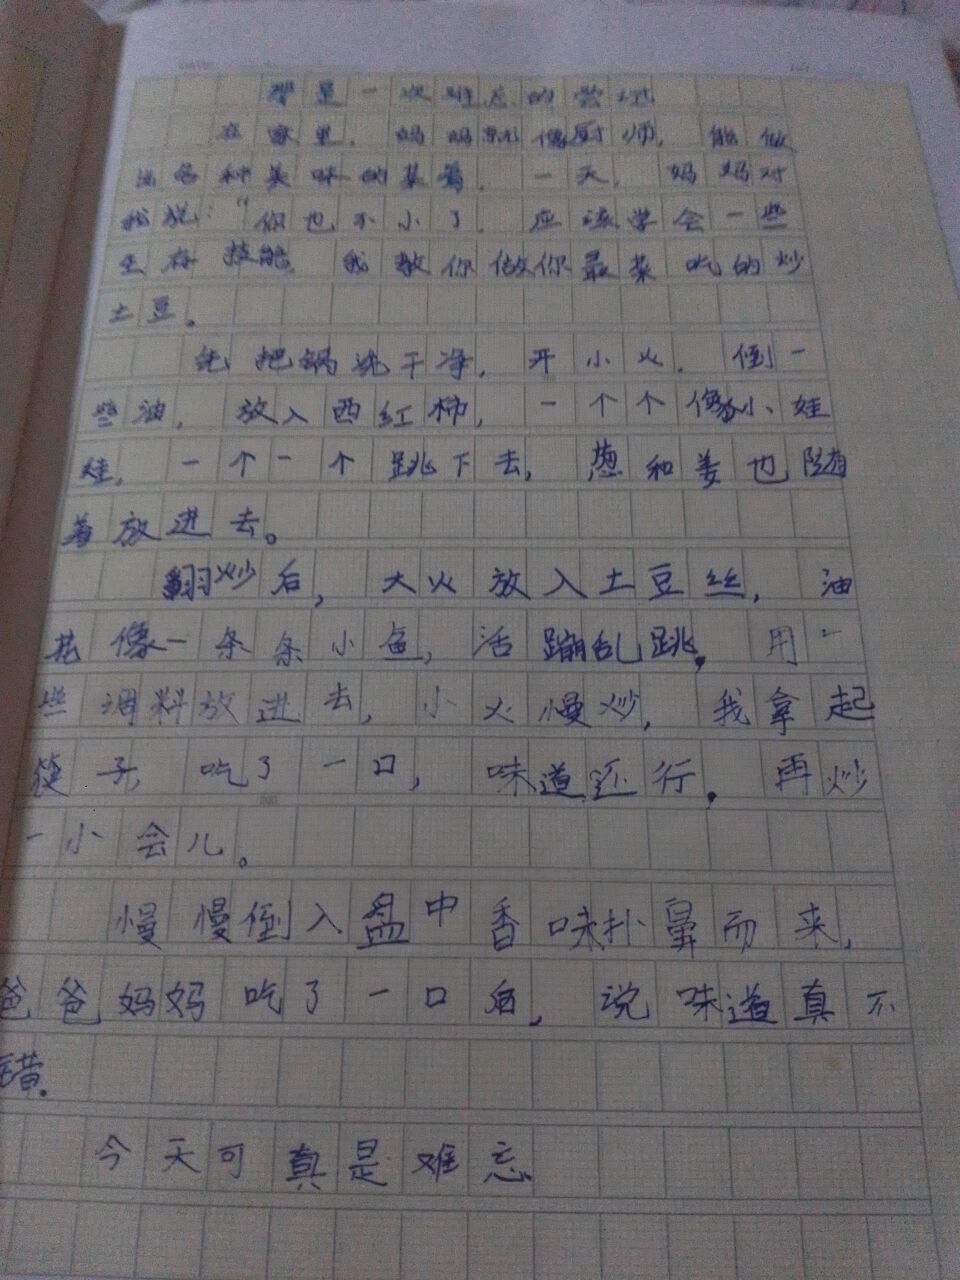 那是一次难忘的尝试
在家里，妈妈就像厨师，能做
出各种美味的菜肴，一天，妈妈对
我说：“你也不小了，应该学会一些
生存技能，我教你做你最菜吃的炒
土豆。
先把锅洗干净，开小火，倒一
些油，放入西红柿，一个个像小娃
娃，一个一个跳下去，葱和姜也随
着放进去。
翻炒后，大火放入土豆丝，油
花像一条条小鱼，活蹦乱跳，用一
些调料放进去，小火慢炒，我拿起
筷子，吃了一口，味道还行。再炒
一小会儿。
慢慢倒入盘中香味扑鼻而来，
爸爸妈妈吃了一口后，说味道真不
错.
今天可真是难忘